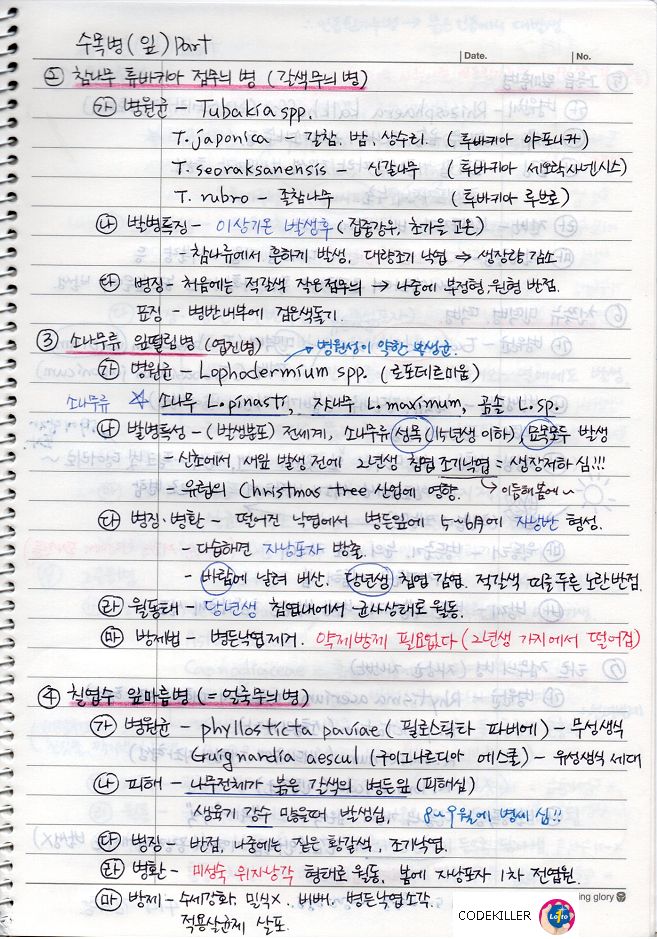 수목병(잎) Part
Date.
No.
② 참나무 튜바키아 점무늬병 (갈색무늬병)
㉮ 병원균 - Tubakia spp.
T. japonica - 갈참, 밤, 상수리. (튜바키아 야포니카)
T. seoraksanensis - 신갈나무 (튜바키아 세오락사넨시스)
T. rubro - 졸참나무 (튜바키아 루브로)
㉯ 발병특징 - 이상기온 발생후 (집중강우, 초가을 고온)
- 참나류에서 흔하게 발생, 대량조기 낙엽 → 생장량 감소
㉰ 병징 - 처음에는 적갈색 작은점무늬 → 나중에 부정형, 원형 반점.
표징 - 병반내부에 검은색돌기.
③ 소나무류 잎떨림병 (엽진병) → 병원성이 약한 부생균.
㉮ 병원균 - Lophodermium spp. (로포데르미움)
소나무류 ☆ 소나무 L. pinasti, 잣나무 L. maximum, 곰솔 L. sp.
㉯ 발병특성 - (발생분포) 전세계, 소나무류 성목 (15년생 이하), 묘목모두 발생
= 신초에서 새잎 발생전에 2년생 침엽 조기낙엽 = 생장저하 심!!!
- 유럽의 Christmas tree 산업에 영향. → 이듬해봄에~
㉰ 병징·병환 - 떨어진 낙엽에서 병든잎에 5~6月에 자낭반 형성.
- 다습하면 자낭포자 방출.
- 바람에 날려 비산. 당년생 침엽 감염. 적갈색 띠를 두른 노란반점.
㉱ 월동태 - 당년생 침엽내에서 균사상태로 월동.
㉲ 방제법 - 병든낙엽제거. 약제방제 필요없다 (2년생 가지에서 떨어짐)
④ 칠엽수 잎마름병 (= 얼룩무늬병)
㉮ 병원균 - phyllosticta paviae (필로스틱타 파비에) - 무성생식
Guignardia aescul (구이그나르디아 에스쿨) - 유성생식 세대
㉯ 피해 - 나무전체가 붉은 갈색의 병든잎 (피해심)
생육기 강수 많을때 발생심, 8~9월에 병세 심!!
㉰ 병징 - 반점, 나중에는 짙은 황갈색, 조기낙엽.
㉱ 병환 - 미성숙 위자낭각 형태로 월동, 봄에 자낭포자 1차 전염원.
㉲ 방제 - 수세강화, 밀식X. 비배. 병든낙엽소각.
적용살균제 살포.
ing glory
CODEKILLER
Lotto